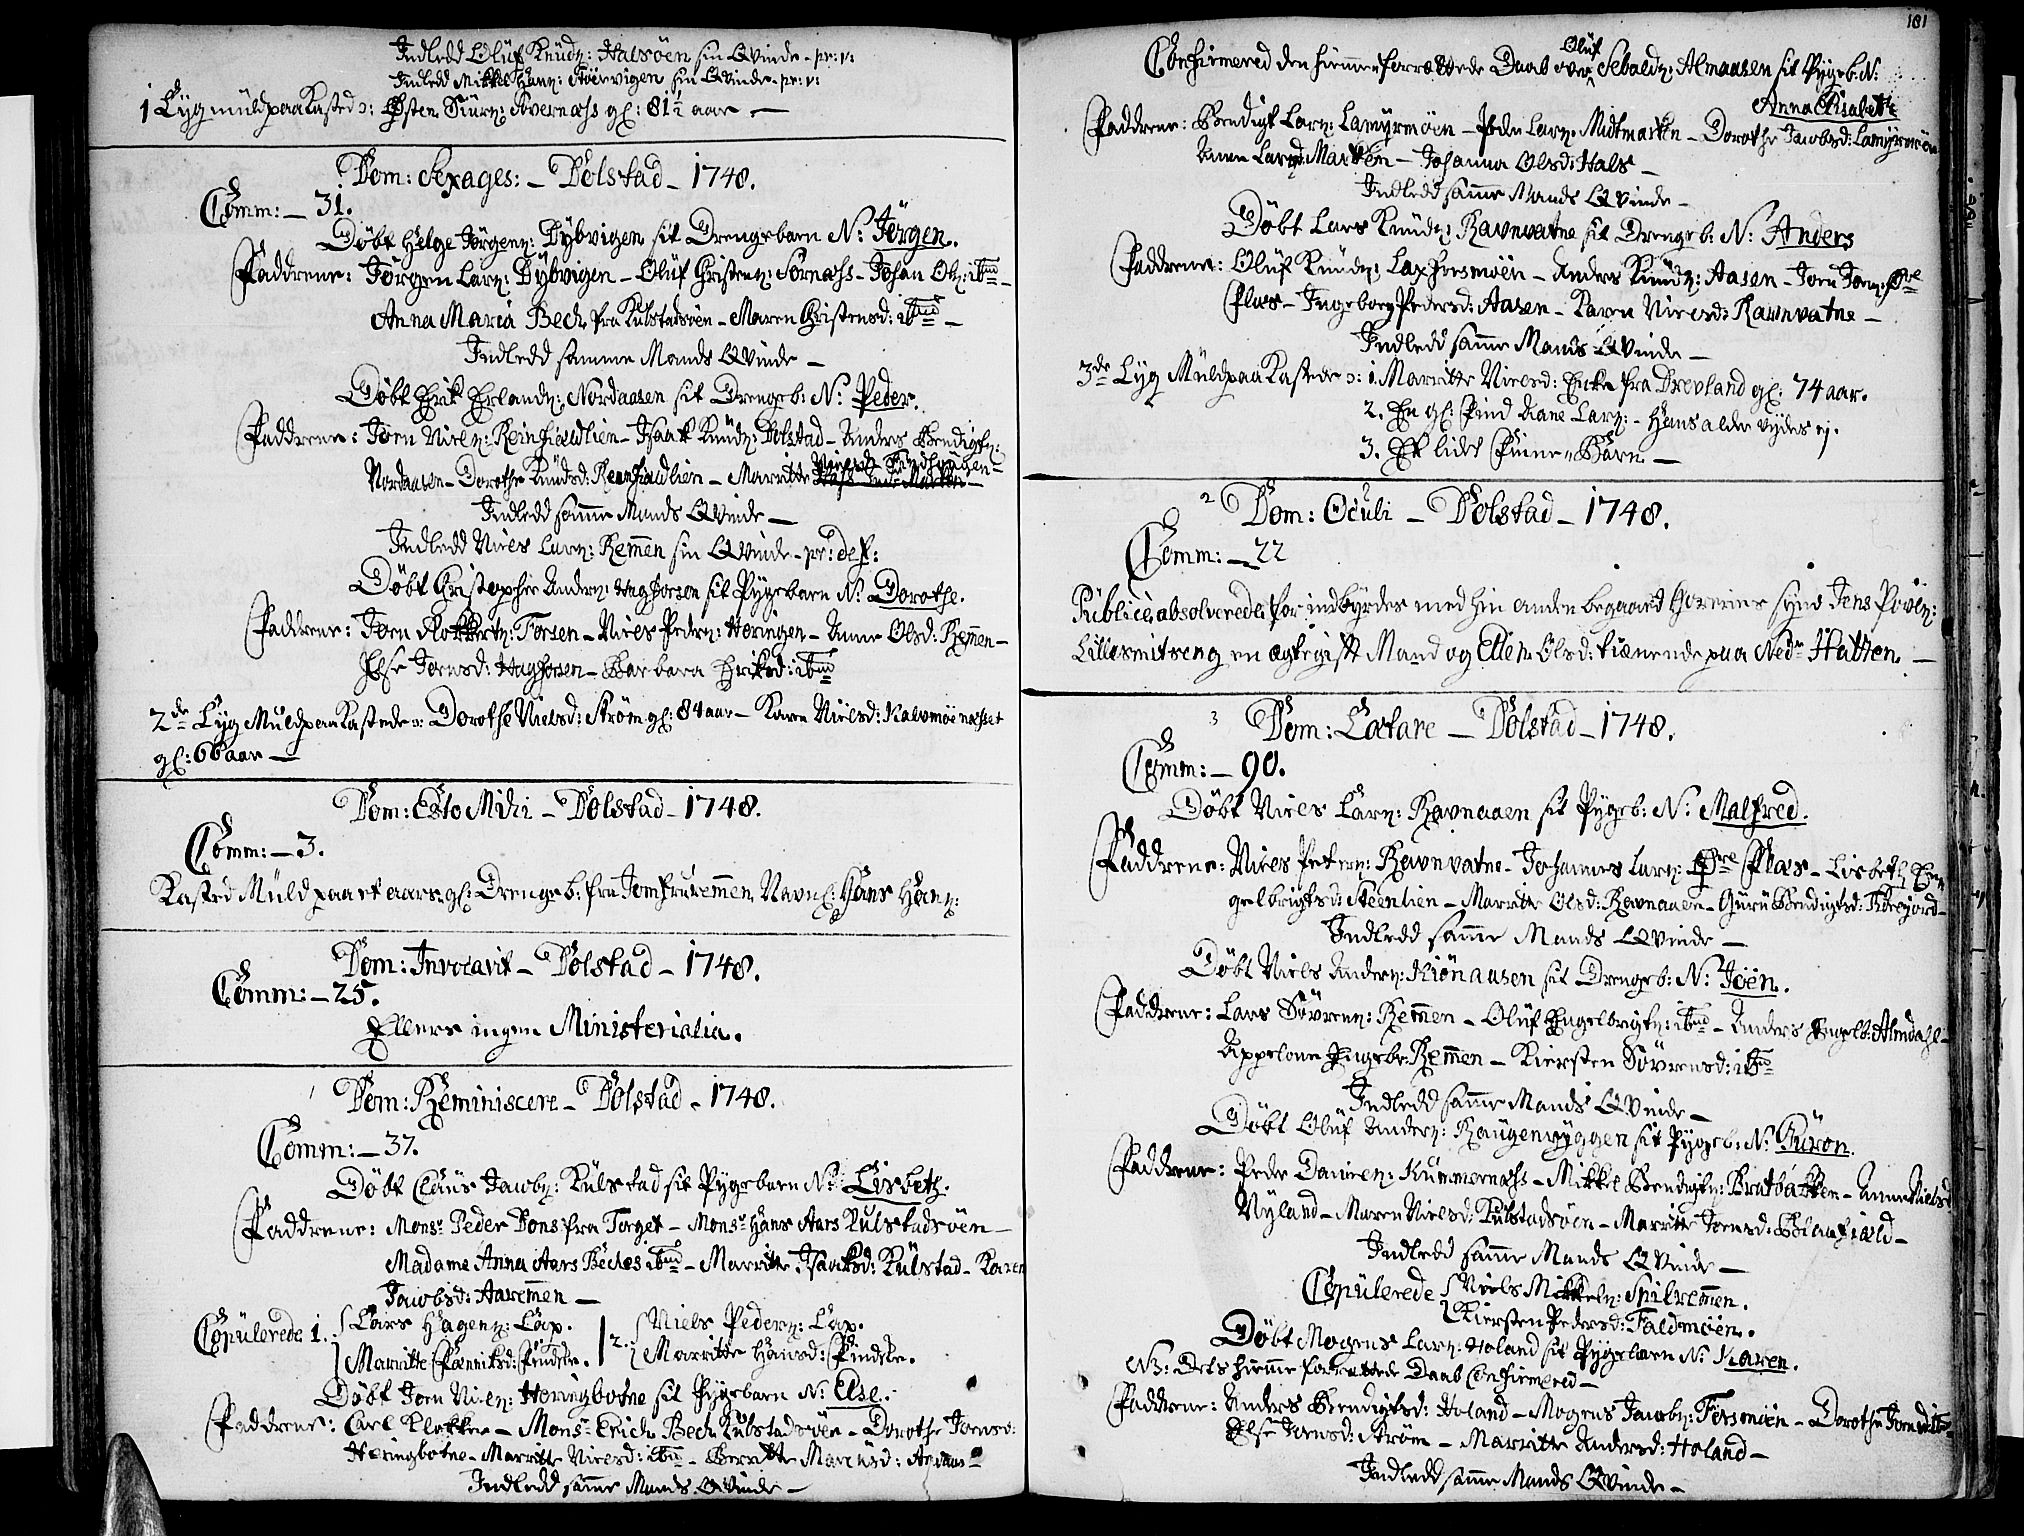 Indledd Oluf Knudz: Halsöen sin Qvinde - pr: v:
Indledd Mikkel Hanz: sin Qvinde - pr: v:
1 Lyg muld paa Kasted ɔ: Østen Siurz: Qvernæss gl: 81½ aar —
Dom: Sexages: – Dolstad – 1748.
Comm: – 31.
Döbt Helge Jörgenz: Dybvigen sit Drengebarn N: Jörgen.
Faddrene: Jörgen Larz: Dybvigen – Oluf Christenz: Sörnæss – Johan Olz: ibid –
Anna Maria Bech fra Kulstadsöen – Maren Christensd: ibid –
Indledd samme Mands Qvinde –
Döbt Erik Erlandz: Nordaasen sit Drengeb: N: Peder.
Faddrene: Joen Nielz: Reinfiældlien – Isaak Knudz: Dolstad – Anders Bendigtz:
Nordaasen – Dorothe Knudsd: Reinfiældlien – Marritte Nielsd:
Indledd samme Mands Qvinde —
Indledd Niels Larz: Remmen sin Qvinde – pr: def:
Döbt Christopher Anderz: Hagforsen sit Pygebarn N: Dorothe.
Faddrene: Joen Flokkertz: Forsen – Niels Pederz: Heringen – Anne Olsd: Remmen –
Else Jornsd: Hagforsen – Barbara Eriksd: ibid
2de Lyg Muld paa Kastede ɔ: Dorothe Nielsd: Ström gl: 84 aar – Karn Nielsd: Kalvmöenæsset
gl: 66 aar —
Dom: Esto Mihi – Dolstad – 1748.
Comm: – 3.
Kasted Muld paa et aars gl: Drengeb: fra Jomfruremmen Navnl: Hans Hanz:
Dom: Invocavit – Dolstad – 1748.
Comm: – 25.
Ellers ingen Ministerialia.
Dom: Reminiscere – Dolstad – 1748.
Comm: – 37.
Döbt Claus Jacobz: Kulstad sit Pygebarn N: Lisbeth.
Faddrene: Monsr Peder Dons fra Torget – Monsr Hans Aars Kulstadsöen –
Madame Anna Aars Beches ibid – Marritte Isaaksd: Kulstad – Karen
Jacobsd: Aaremmen —
Copulerede 1. Lars Hagenz: Lap. 2. Niels Pederz: Lap.
Marritte Pændiksd: Pindeke. Marritte Hansd: Pindeke.
Döbt Joen Nielz: Heringbotne sit Pygebarn N: Else.
Faddrene: Carl Klokker – Monsr Erich Bech Kulstadsöen – Dorothe Joensd:
Heringbotne – Marritte Nielsd: ibid – Berritte Marcusd:
Indledd samme Mands Qvinde –
101
Confirmered den hiemme-forrettede Daab over Oluf Sebaldz: Almaasen sit Pygeb: N:
Anna Elisabeth
Faddrene: Bendigt Larz: Lamyrmöen – Peder Larz: Midtmarken – Dorothe Jacobsd: Lamyrmöen
Anne Larsd: Marken – Johanna Olsd: Hals –
Indledd samme Mands Qvinde –
Döbt Lars Knudz: Ravnvatne sit Drengeb: N: Anders
Faddrene: Oluf Knudz: Laxforsmöen – Anders Knudz: Aasen – Joen Joenz: Øvre
Plas – Ingeborg Pedersd: Aasen – Karen Nielsd: Ravnvatne –
Indledd samme Mands Qvinde –
3de Lyg Muld paa Kastede ɔ: 1. Marritte Nielsd: Enke fra Drevland gl: 74 aar.
2. En gl: Find Kane Larz: – hans alder vides ej.
3. Et lidet Finne-Barn —
2 Dom: Oculi – Dolstad – 1748.
Comm: – 22
Publicè absolverede for indbyrdes med hin anden begaaed Horeries synd Jens Povelz:
Lillesmitseng en ægtegift Mand og Ellen Olsd: tienende paa Nedr Hatten. –
3 Dom: Lætare – Dolstad – 1748.
Comm: – 90.
Döbt Niels Larz: Ravnaaen sit Pygeb: N: Malfred.
Faddrene: Niels Peterz: Ravnvatne – Johannes Larz: Øvre Plas – Lisbeth En-
gelbrigtsd: Steenlien – Marritte Olsd: Ravnaaen – Guru Bendigtsd:
Indledd samme Mands Qvinde –
Döbt Niels Anderz: Kiönaasen sit Drengeb: N: Joen.
Faddrene: Lars Sövrenz: Remmen – Oluf Engelbrigtz: ibid – Anders Engelb: Almdahl –
Appelone Engebr: Remmen – Kiersten Sövrensd: ibid
Indledd samme Mands Qvinde –
Döbt Oluf Anderz: Haugenryggen sit Pygeb: N: Guron.
Faddrene: Peder Danielz: Kummernæss – Mikkel Bendigtz: Bratbakken – Anne Nielsd:
Nyland – Maren Nielsd: Kulstadsöen – Marritte Joensd: Blaafiæld –
Indledd samme Mands Qvinde –
Copulerede Niels Mikkelz: Spilremmen.
Kiersten Pedersd: Faldmöen.
Döbt Mogens Larz: Holand sit Pygebarn N: Karen.
NB: Dets hiemme forrettede Daab Confirmered –
Faddrene: Anders Bendigtsd: Holand – Mogens Jacobz: Forsmöen – Dorothe Joensd: ib –
Else Jornsd: Ström – Marritte Andersd: Holand –
Indledd samme Mands Qvinde –